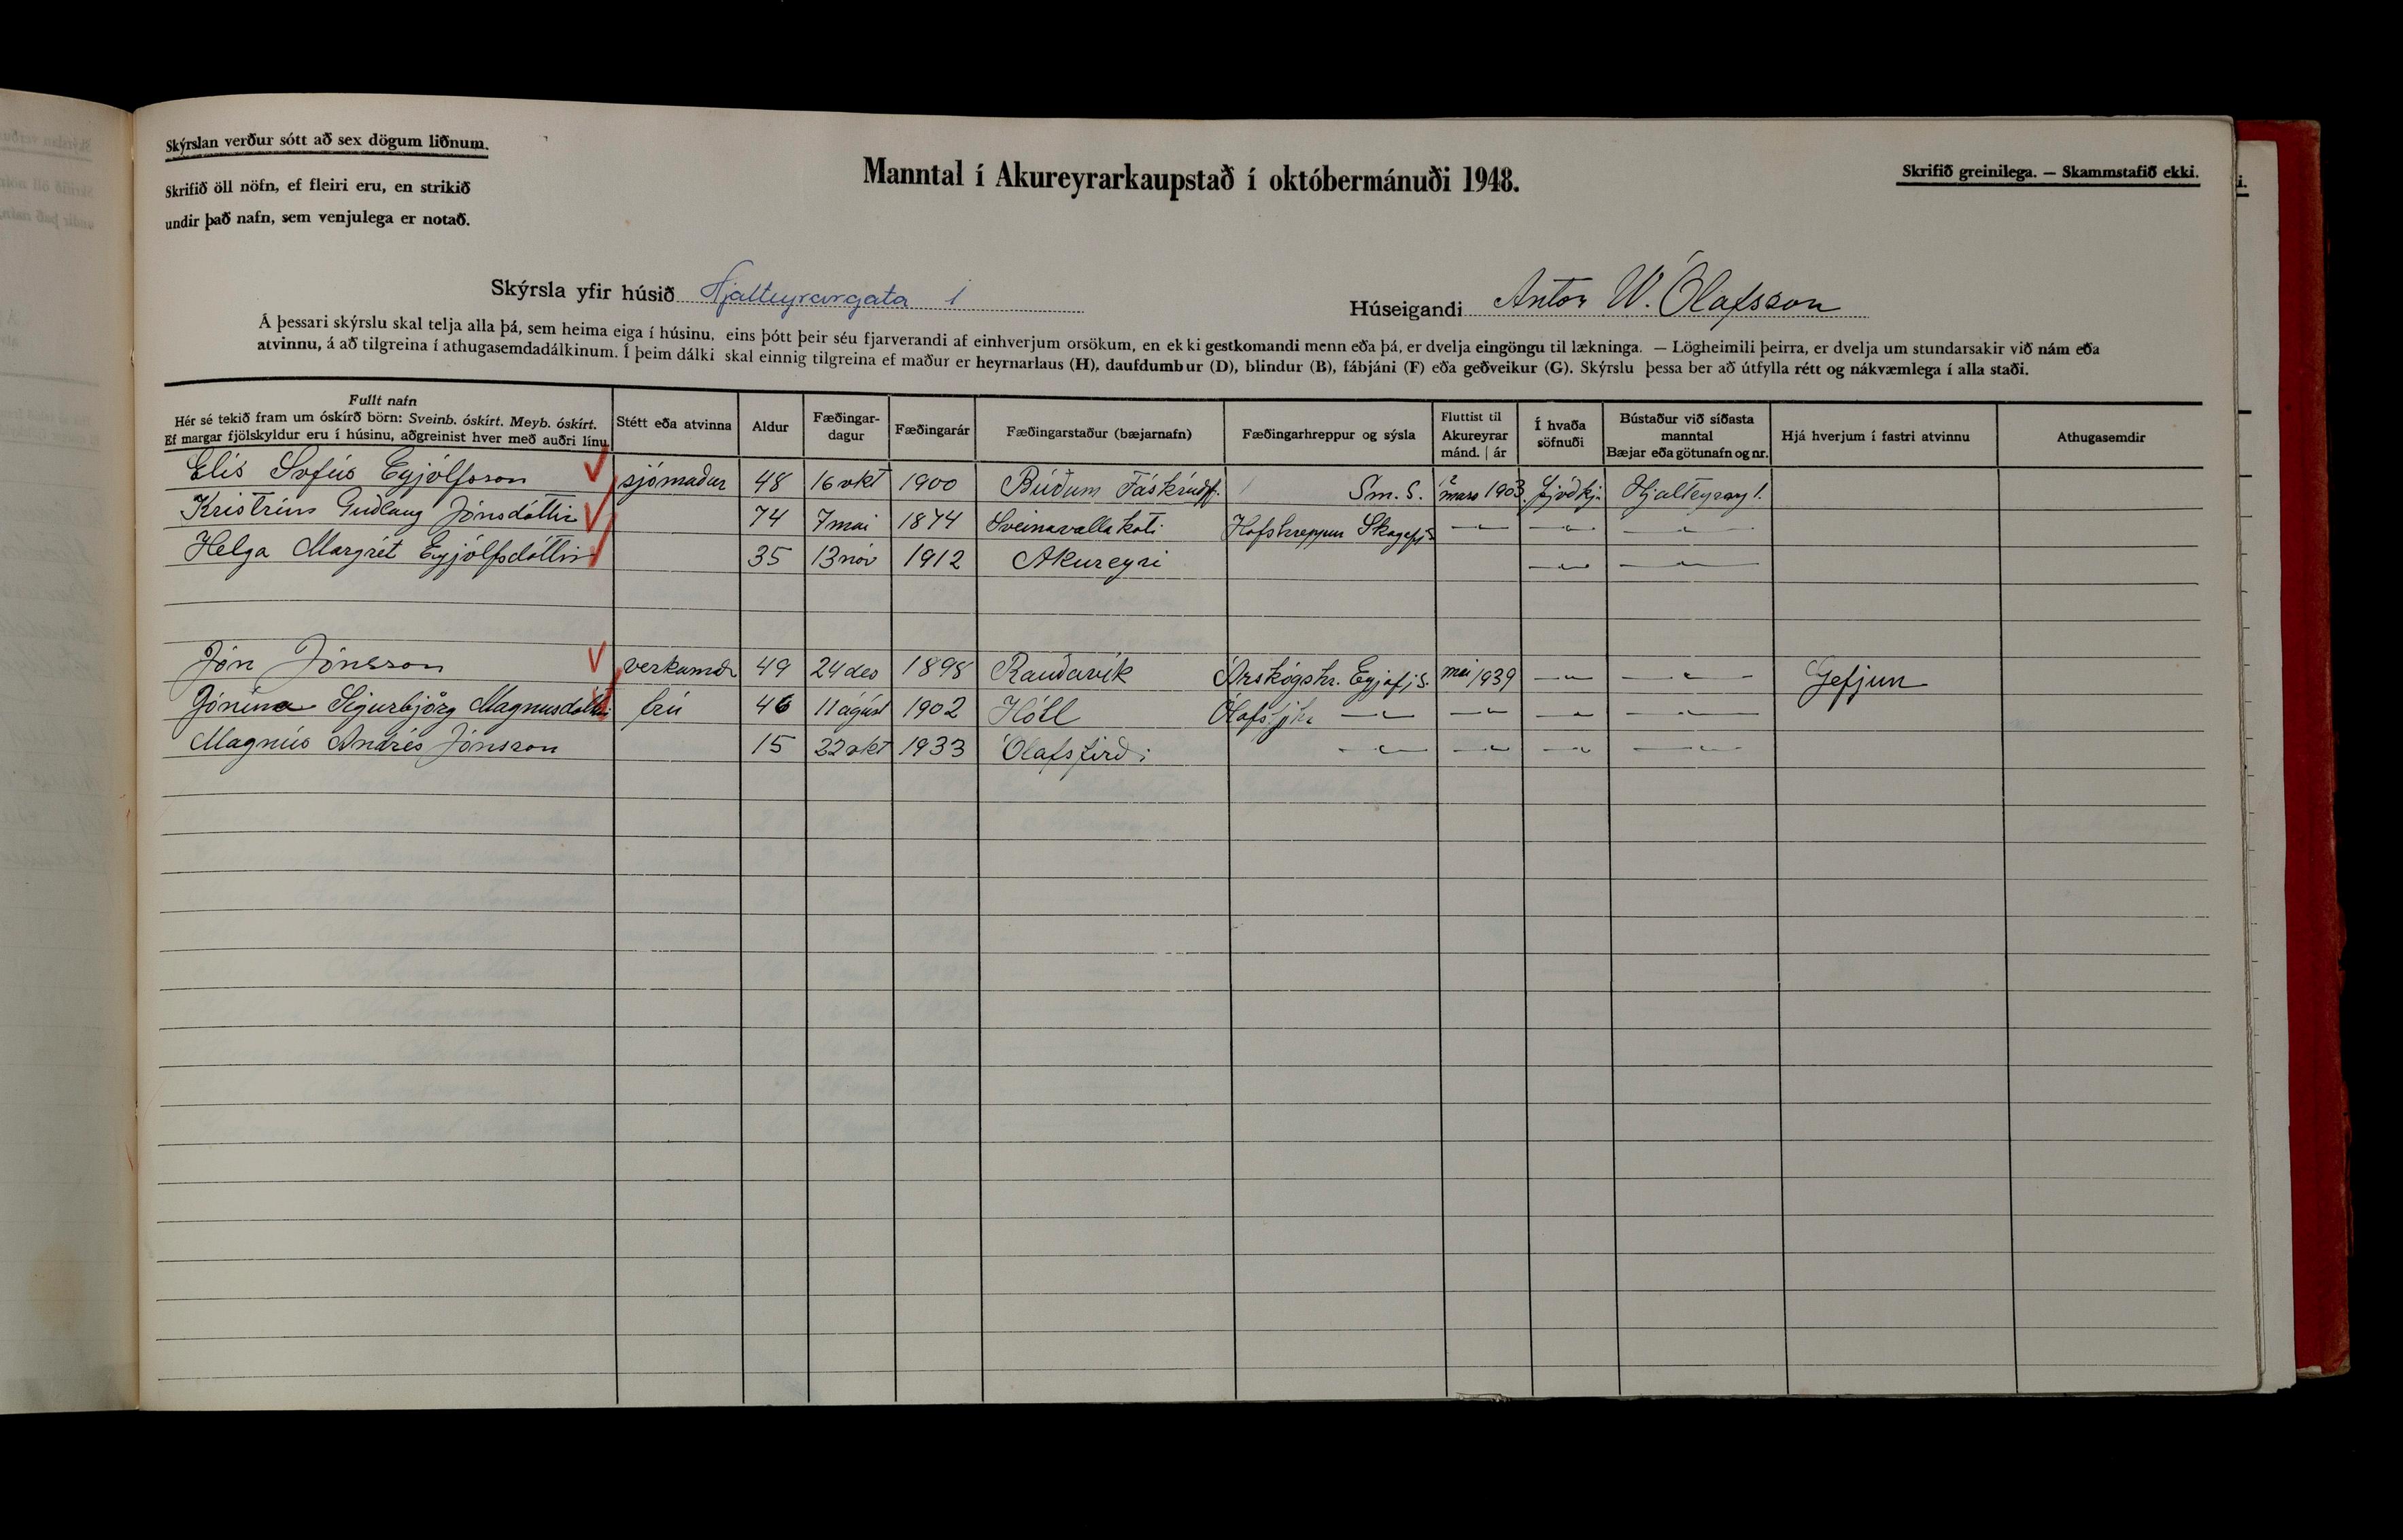 Skýrslan verður sótt að sex dögum liðnum.
Skrifið öll nöfn, ef fleiri eru, en strikið
undir það nafn, sem venjulega er notað.
Manntal í Akureyrarkaupstað í októbermánuði 1948.
Skrifið greinilega. — Skammstafið ekki.
Skýrsla yfir húsið Hjalteyrargata 1
Húseigandi Anton W. Ólafsson
Á þessari skýrslu skal telja alla þá, sem heima eiga í húsinu, eins þótt þeir séu fjarverandi af einhverjum orsökum, en ekki gestkomandi menn eða þá, er dvelja eingöngu til lækninga. — Lögheimili þeirra, er dvelja um stundarsakir við nám eða
atvinnu, á að tilgreina í athugasemdadálkinum. Í þeim dálki skal einnig tilgreina ef maður er heyrnarlaus (H), daufdumbur (D), blindur (B), fábjáni (F) eða geðveikur (G). Skýrslu þessa ber að útfylla rétt og nákvæmlega í alla staði.
Fullt nafn
Hér sé tekið fram um óskírð börn: Sveinb. óskírt. Meyb. óskírt.
Ef margar fjölskyldur eru í húsinu, aðgreinist hver með auðri línu.
Stétt eða atvinna
Aldur
Fæðingar-
dagur
Fæðingarár
Fæðingarstaður (bæjarnafn)
Fæðingarhreppur og sýsla
Fluttist til
Akureyrar
mánd. | ár
Í hvaða
söfnuði
Bústaður við síðasta
manntal
Bæjar eða götunafn og nr.
Hjá hverjum í fastri atvinnu
Athugasemdir
Elís Sofús Eyjólfsson sjómaður 48 16 okt 1900 Búðum Fáskrúðsf. Sm. S. mars 1903 Þjóðkj. Hjalteyrarg 1.
Kristrún Guðlaug Jónsdóttir 74 7 mai 1874 Sveinavallakoti Hofshreppur Skagafj.s — " — — " — — " —
Helga Margrét Eyjólfsdóttir 35 13 nóv 1912 Akureyri — " — — " —
Jón Jónsson verkamdr 49 24 des 1898 Rauðavík Árskógshr. Eyjafj.s. mai 1939 — " — — " — Gefjun
Jónína Sigurbjörg Magnusdóttir frú 46 11 ágúst 1902 Hóll Ólafsfjhr — " — — " — — " — — " —
Magnús Andrés Jónsson 15 22 okt 1933 Ólafsfirði — " — — " — — " — — " —